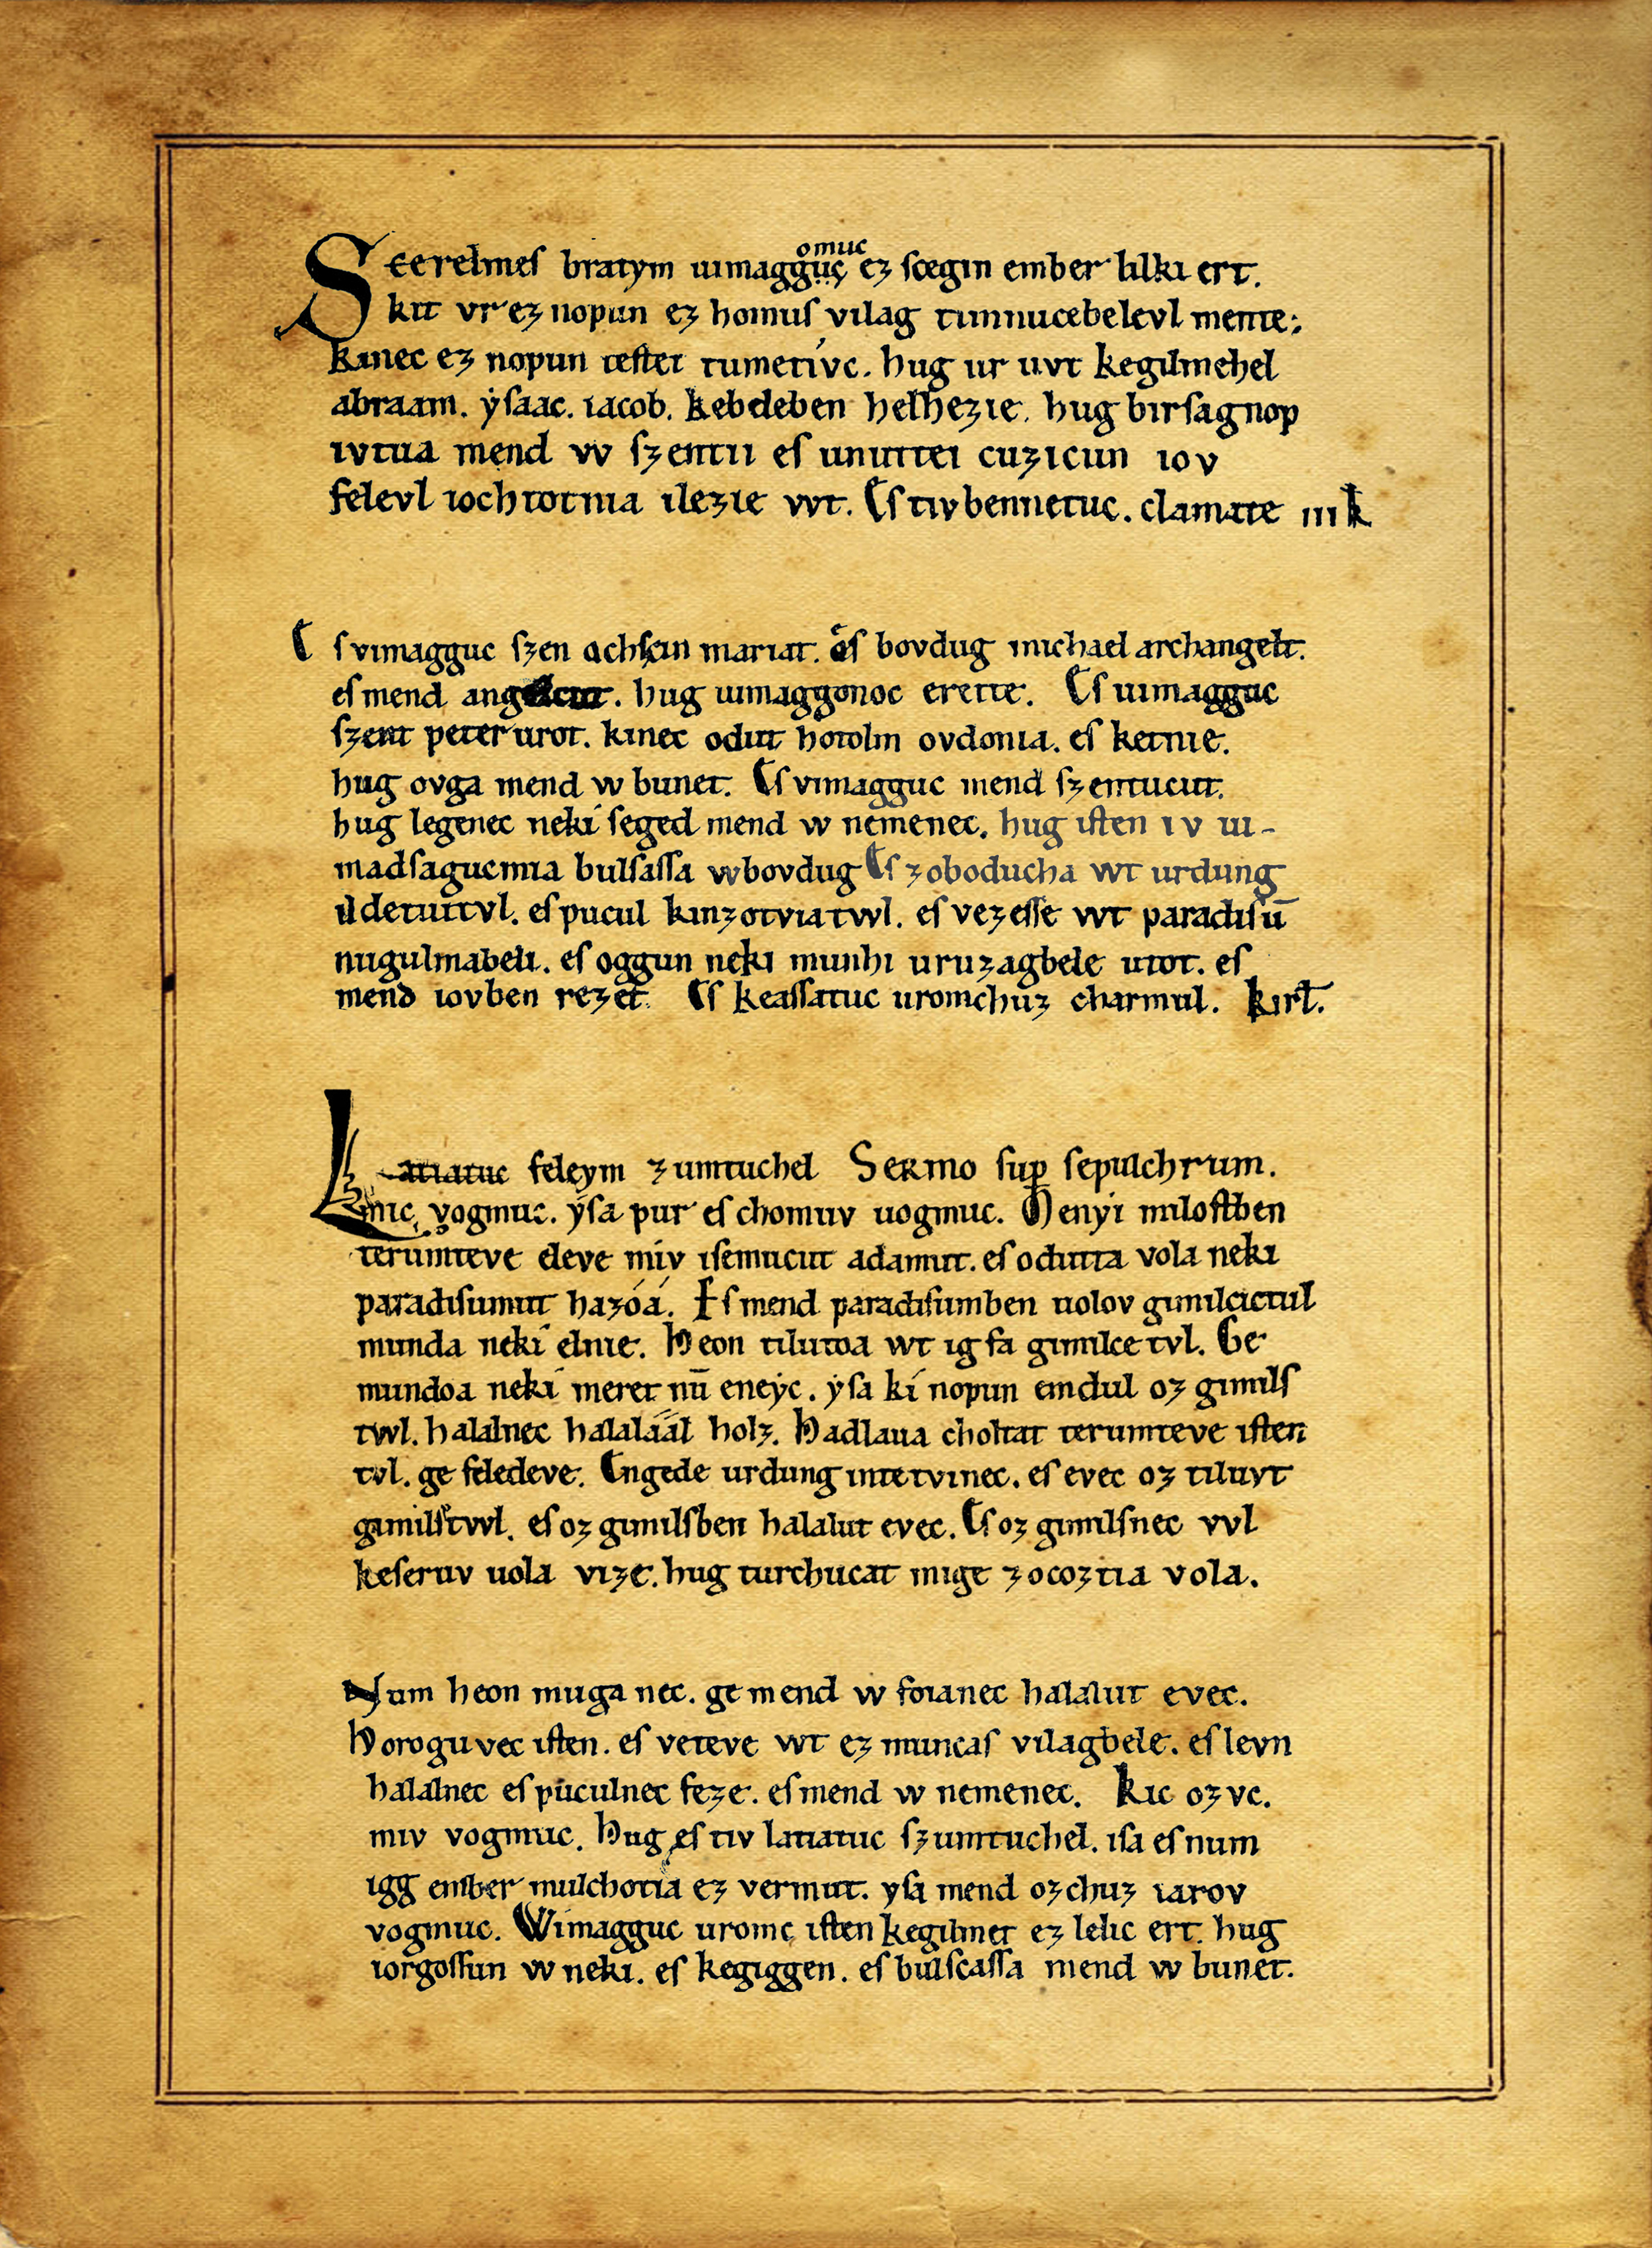 omuc
Scerelmeſ bratym uimagguc eʒ ſcegin ember lilki ert.
kit vr eʒ nopun eʒ homuſ vilag timnucebelevl mente;
kinec eʒ nopun teſtet tumetívc. hug ur uvt kegilmehel
abraam. ẏſaac. iacob. kebeleben helhezie. hug birſagnop
ivtua mend w ſzentii eſ unuttei cuzicun iov
felevl iochtotnia ilezie vvt. Eſ tivbennetuc. clamate iii k
Eſ vimagguc ſzen achſcin mariat. eſ bovdug michael archangelt.
eſ mend . hug uimaggonoc erette. Eſ uimagguc
ſzent peter urot. kinec odut hotolm ovdonia. eſ ketnie.
hug ovga mend w bunet. Eſ vimagguc mend ſzentucut.
hug legenec neki ſeged mend w nemenec. hug iſten iv ui-
madſagucmia bulſaſſa w bovdug Eſ zoboducha wt urdung
ildetuitvl. eſ pucul kinzotviatwl. eſ vezeſſe wt paradiſū
nugulmabeli. eſ oggun neki munhi uruzagbele utot. eſ
mend iovben rezet. Eſ keaſſatuc uromchuz charmul. kirł.
Latiatuc feleym zumtuchel Sermo ſup̄ ſepulchrum.
mic vogmuc. ẏſa pur eſ chomuv uogmuc. Menyi miloſtben
terumteve eleve miv iſemucut adamut. eſ odutta vola neki
paradiſumut hazóá. Eſ mend paradiſumben uolov gimilcictul
munda neki elnie. Heon tilutoa wt ig fa gimilce tvl. Ge
mundoa neki meret nū eneẏc. ẏſa kí nopun emdul oz gimilſ
twl. halalnec halaláál holz. Hadlaua choltat terumteve iſten
tvl. ge feledeve. Engede urdung intetvinec. eſ evec oz tiluvt
gimilſtwl. eſ oz gimilſben halalut evec. Eſ oz gimilſnec vvl
keſeruv uola vize. hug turchucat mige zocoztia vola.
Num heon muga nec. ge mend w foianec halalut evec.
Horoguvec iſten. eſ veteve wt ez muncaſ vilagbele. eſ levn
halalnec eſ puculnec feze. eſ mend w nemenec. Kic ozvc.
miv vogmuc. Hug eſ tiv latiatuc ſzumtuchel. iſa eſ num
igg ember mulchotia ez vermut. yſa mend ozchuz iarov
vogmuc. Wimagguc uromc iſten kegilmet ez lelic ert. hug
iorgoſſun w neki. eſ kegiggen. eſ bulſcaſſa mend w bunet.